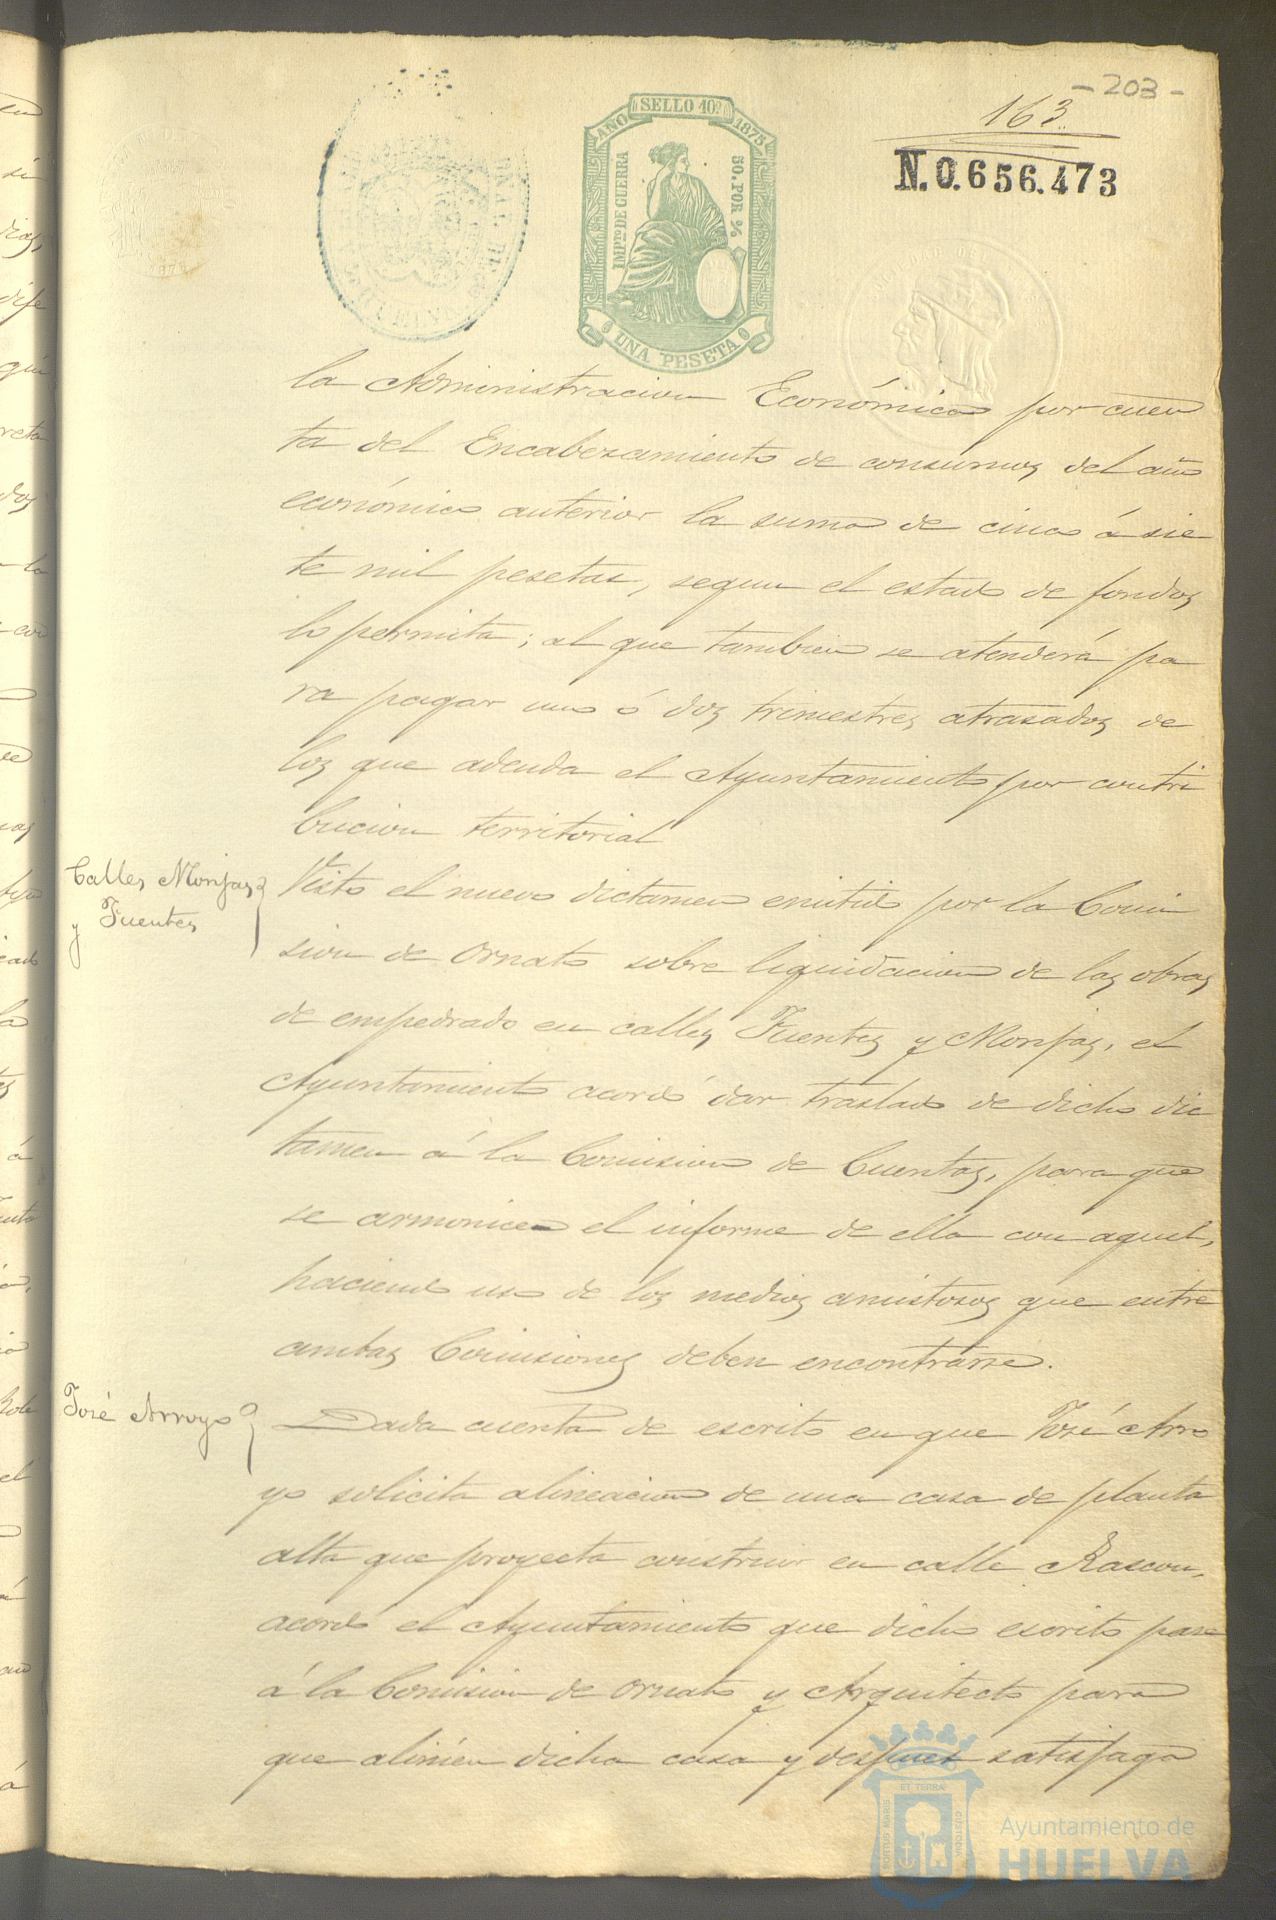 - 203 -
163
N.0.656.473
AÑO SELLO 10º 1875
IMPTO DE GUERRA
50. POR %
UNA PESETA
la Administracion Económica por cuen
ta del Encabezamiento de consumos del año
económico anterior la suma de cinco á sie
te mil pesetas, segun el estado de fondos
lo permita; al que tambien se atenderá pa
ra pagar uno ó dos trimestres atrasados de
los que adeuda el Ayuntamiento por contri
bucion territorial
Calles Monjas
y Fuentes
Visto el nuevo dictamen emitido por la Comi
sion de Ornato sobre liquidacion de las obras
de empedrado en calles Fuentes y Monjas, el
Ayuntamiento acordó dar traslado de dicho dic
tamen á la Comision de Cuentas, para que
se armonice el informe de ella con aquel,
haciendo uso de los medios amistosos que entre
ambas Comisiones deben encontrarse.
José Arroyo
Dada cuenta de escrito en que José Arro
yo solicita alineacion de una casa de planta
alta que proyecta construir en calle Rascon,
acordó el Ayuntamiento que dicho escrito pase
á la Comision de Ornato y Arquitecto para
que alineen dicha casa y despues satisfaga
PORTUS MARIS
ET TERRA
CUSTODIA
Ayuntamiento de
HUELVA